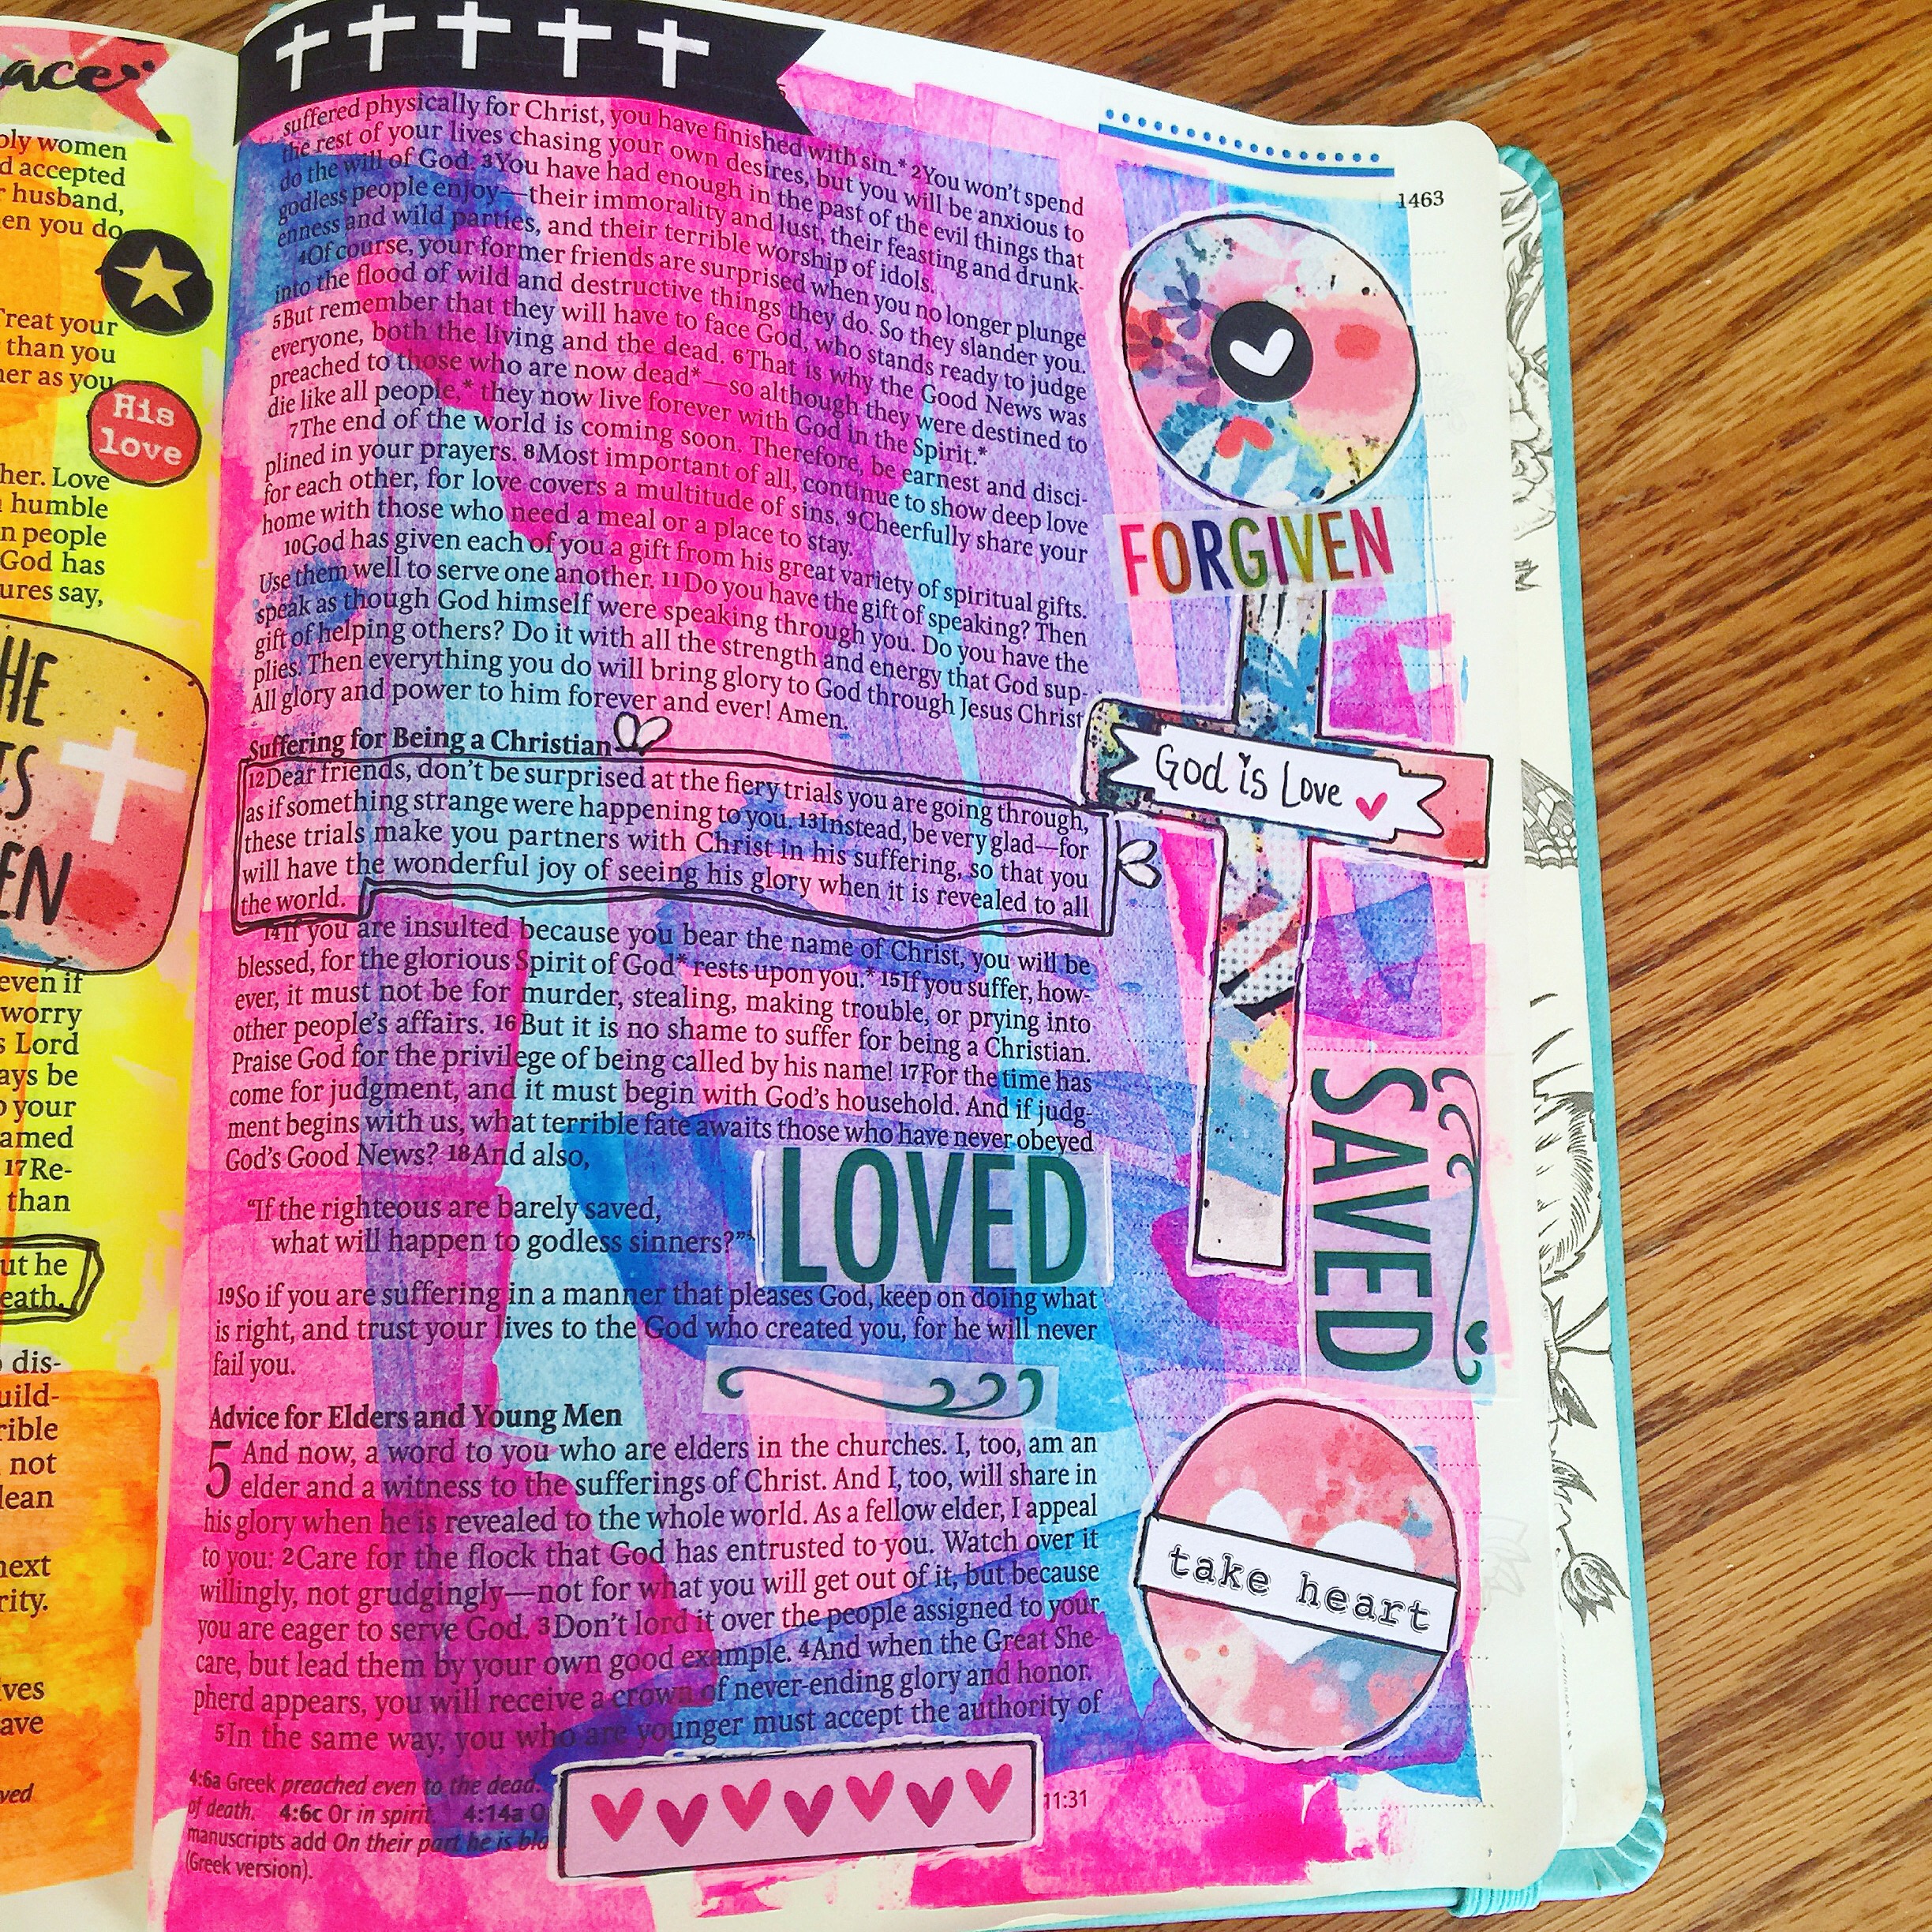 ace
oly women
d accepted
r husband,
en you do
Treat your
than you
her as you
His
love
her. Love
humble
n people
God has
ures say,
HE
TS
EN
even if
worry
s Lord
ays be
o your
amed
17Re-
than
ut he
eath.
dis-
uild-
rible
not
lean
next
rity.
ves
ave
ved
1463
suffered physically for Christ, you have finished with sin.* 2You won't spend
the rest of your lives chasing your own desires, but you will be anxious to
do the will of God. 3You have had enough in the past of the evil things that
godless people enjoy—their immorality and lust, their feasting and drunk-
enness and wild parties, and their terrible worship of idols.
4Of course, your former friends are surprised when you no longer plunge
into the flood of wild and destructive things they do. So they slander you.
5But remember that they will have to face God, who stands ready to judge
everyone, both the living and the dead. 6That is why the Good News was
preached to those who are now dead*—so although they were destined to
die like all people,* they now live forever with God in the Spirit.*
7The end of the world is coming soon. Therefore, be earnest and disci-
plined in your prayers. 8Most important of all, continue to show deep love
for each other, for love covers a multitude of sins. 9Cheerfully share your
home with those who need a meal or a place to stay.
10God has given each of you a gift from his great variety of spiritual gifts.
Use them well to serve one another. 11Do you have the gift of speaking? Then
speak as though God himself were speaking through you. Do you have the
gift of helping others? Do it with all the strength and energy that God sup-
plies. Then everything you do will bring glory to God through Jesus Christ
All glory and power to him forever and ever! Amen.
Suffering for Being a Christian
12Dear friends, don't be surprised at the fiery trials you are going through,
as if something strange were happening to you. 13Instead, be very glad—for
these trials make you partners with Christ in his suffering, so that you
will have the wonderful joy of seeing his glory when it is revealed to all
the world.
14If you are insulted because you bear the name of Christ, you will be
blessed, for the glorious Spirit of God* rests upon you.* 15If you suffer, how-
ever, it must not be for murder, stealing, making trouble, or prying into
other people's affairs. 16But it is no shame to suffer for being a Christian.
Praise God for the privilege of being called by his name! 17For the time has
come for judgment, and it must begin with God's household. And if judg-
ment begins with us, what terrible fate awaits those who have never obeyed
God's Good News? 18And also,
"If the righteous are barely saved,
what will happen to godless sinners?"*
19So if you are suffering in a manner that pleases God, keep on doing what
is right, and trust your lives to the God who created you, for he will never
fail you.
Advice for Elders and Young Men
5 And now, a word to you who are elders in the churches. I, too, am an
elder and a witness to the sufferings of Christ. And I, too, will share in
his glory when he is revealed to the whole world. As a fellow elder, I appeal
to you: 2Care for the flock that God has entrusted to you. Watch over it
willingly, not grudgingly—not for what you will get out of it, but because
you are eager to serve God. 3Don't lord it over the people assigned to your
care, but lead them by your own good example. 4And when the Great She-
pherd appears, you will receive a crown of never-ending glory and honor.
5In the same way, you who are younger must accept the authority of
4:6a Greek preached even to the dead.
of death. 4:6c Or in spirit. 4:14a O
manuscripts add On their part he is bla
(Greek version).
11:31
FORGIVEN
God is Love
LOVED
SAVED
take heart